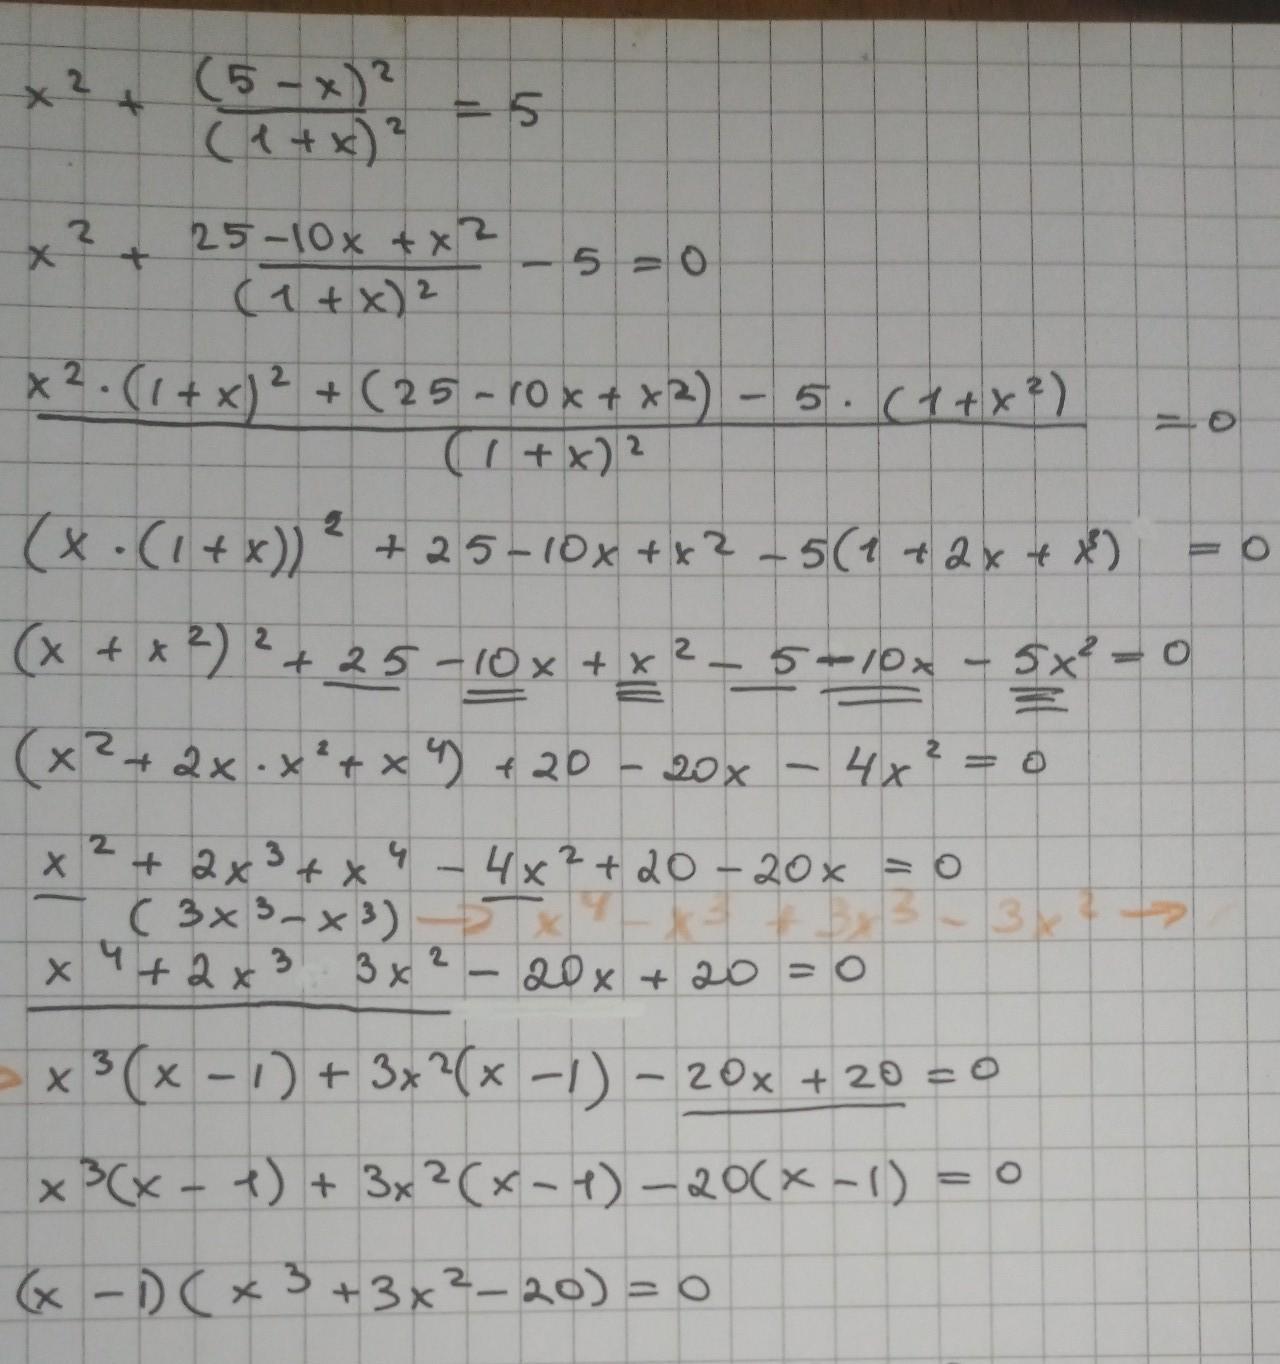 x² + (5 - x)² / (1 + x)² = 5
x² + 25 - 10x + x² / (1 + x)² - 5 = 0
x² · (1 + x)² + (25 - 10x + x2) - 5 · (1 + x²) / (1 + x)² = 0
(x · (1 + x))² + 25 - 10x + x² - 5(1 + 2x + x²) = 0
(x + x²)² + 25 - 10x + x² - 5 - 10x - 5x² = 0
(x² + 2x · x² + x⁴) + 20 - 20x - 4x² = 0
x² + 2x³ + x⁴ - 4x² + 20 - 20x = 0
(3x³ - x³) → x⁴ - x³ + 3x³ - 3x² →
x⁴ + 2x³ 3x² - 20x + 20 = 0
x³(x - 1) + 3x²(x - 1) - 20x + 20 = 0
x³(x - 1) + 3x²(x - 1) - 20(x - 1) = 0
(x - 1)(x³ + 3x² - 20) = 0